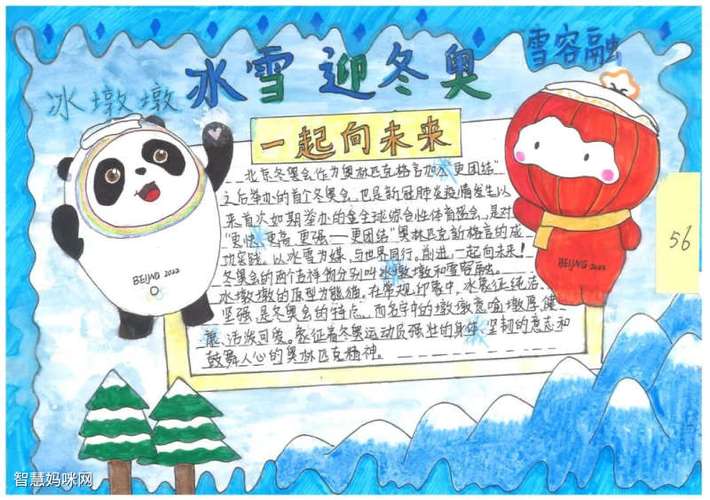 冰雪迎冬奥
雪容融
冰墩墩
一起向未来
北京冬奥会作为奥林匹克格言加入"更团结"
之后举办的首个冬奥会,也是新冠肺炎疫情发生以
来首次如期举办的全球综合性体育盛会,是对
"更快、更高、更强——更团结"奥林匹克新格言的成
功实践。以冰雪为媒,与世界同行。前进,一起向未来!
冬奥会的两个吉祥物分别叫冰墩墩和雪容融。
冰墩墩的原型为熊猫。在常规印象中,冰象征纯洁、
坚强,是冬奥会的特点。而名字中的墩墩意喻墩厚、健
康、活泼可爱。象征着冬奥运动员强壮的身体、坚韧的意志和
鼓舞人心的奥林匹克精神。
BEIJING 2022
BEIJING 2022
56
智慧妈咪网